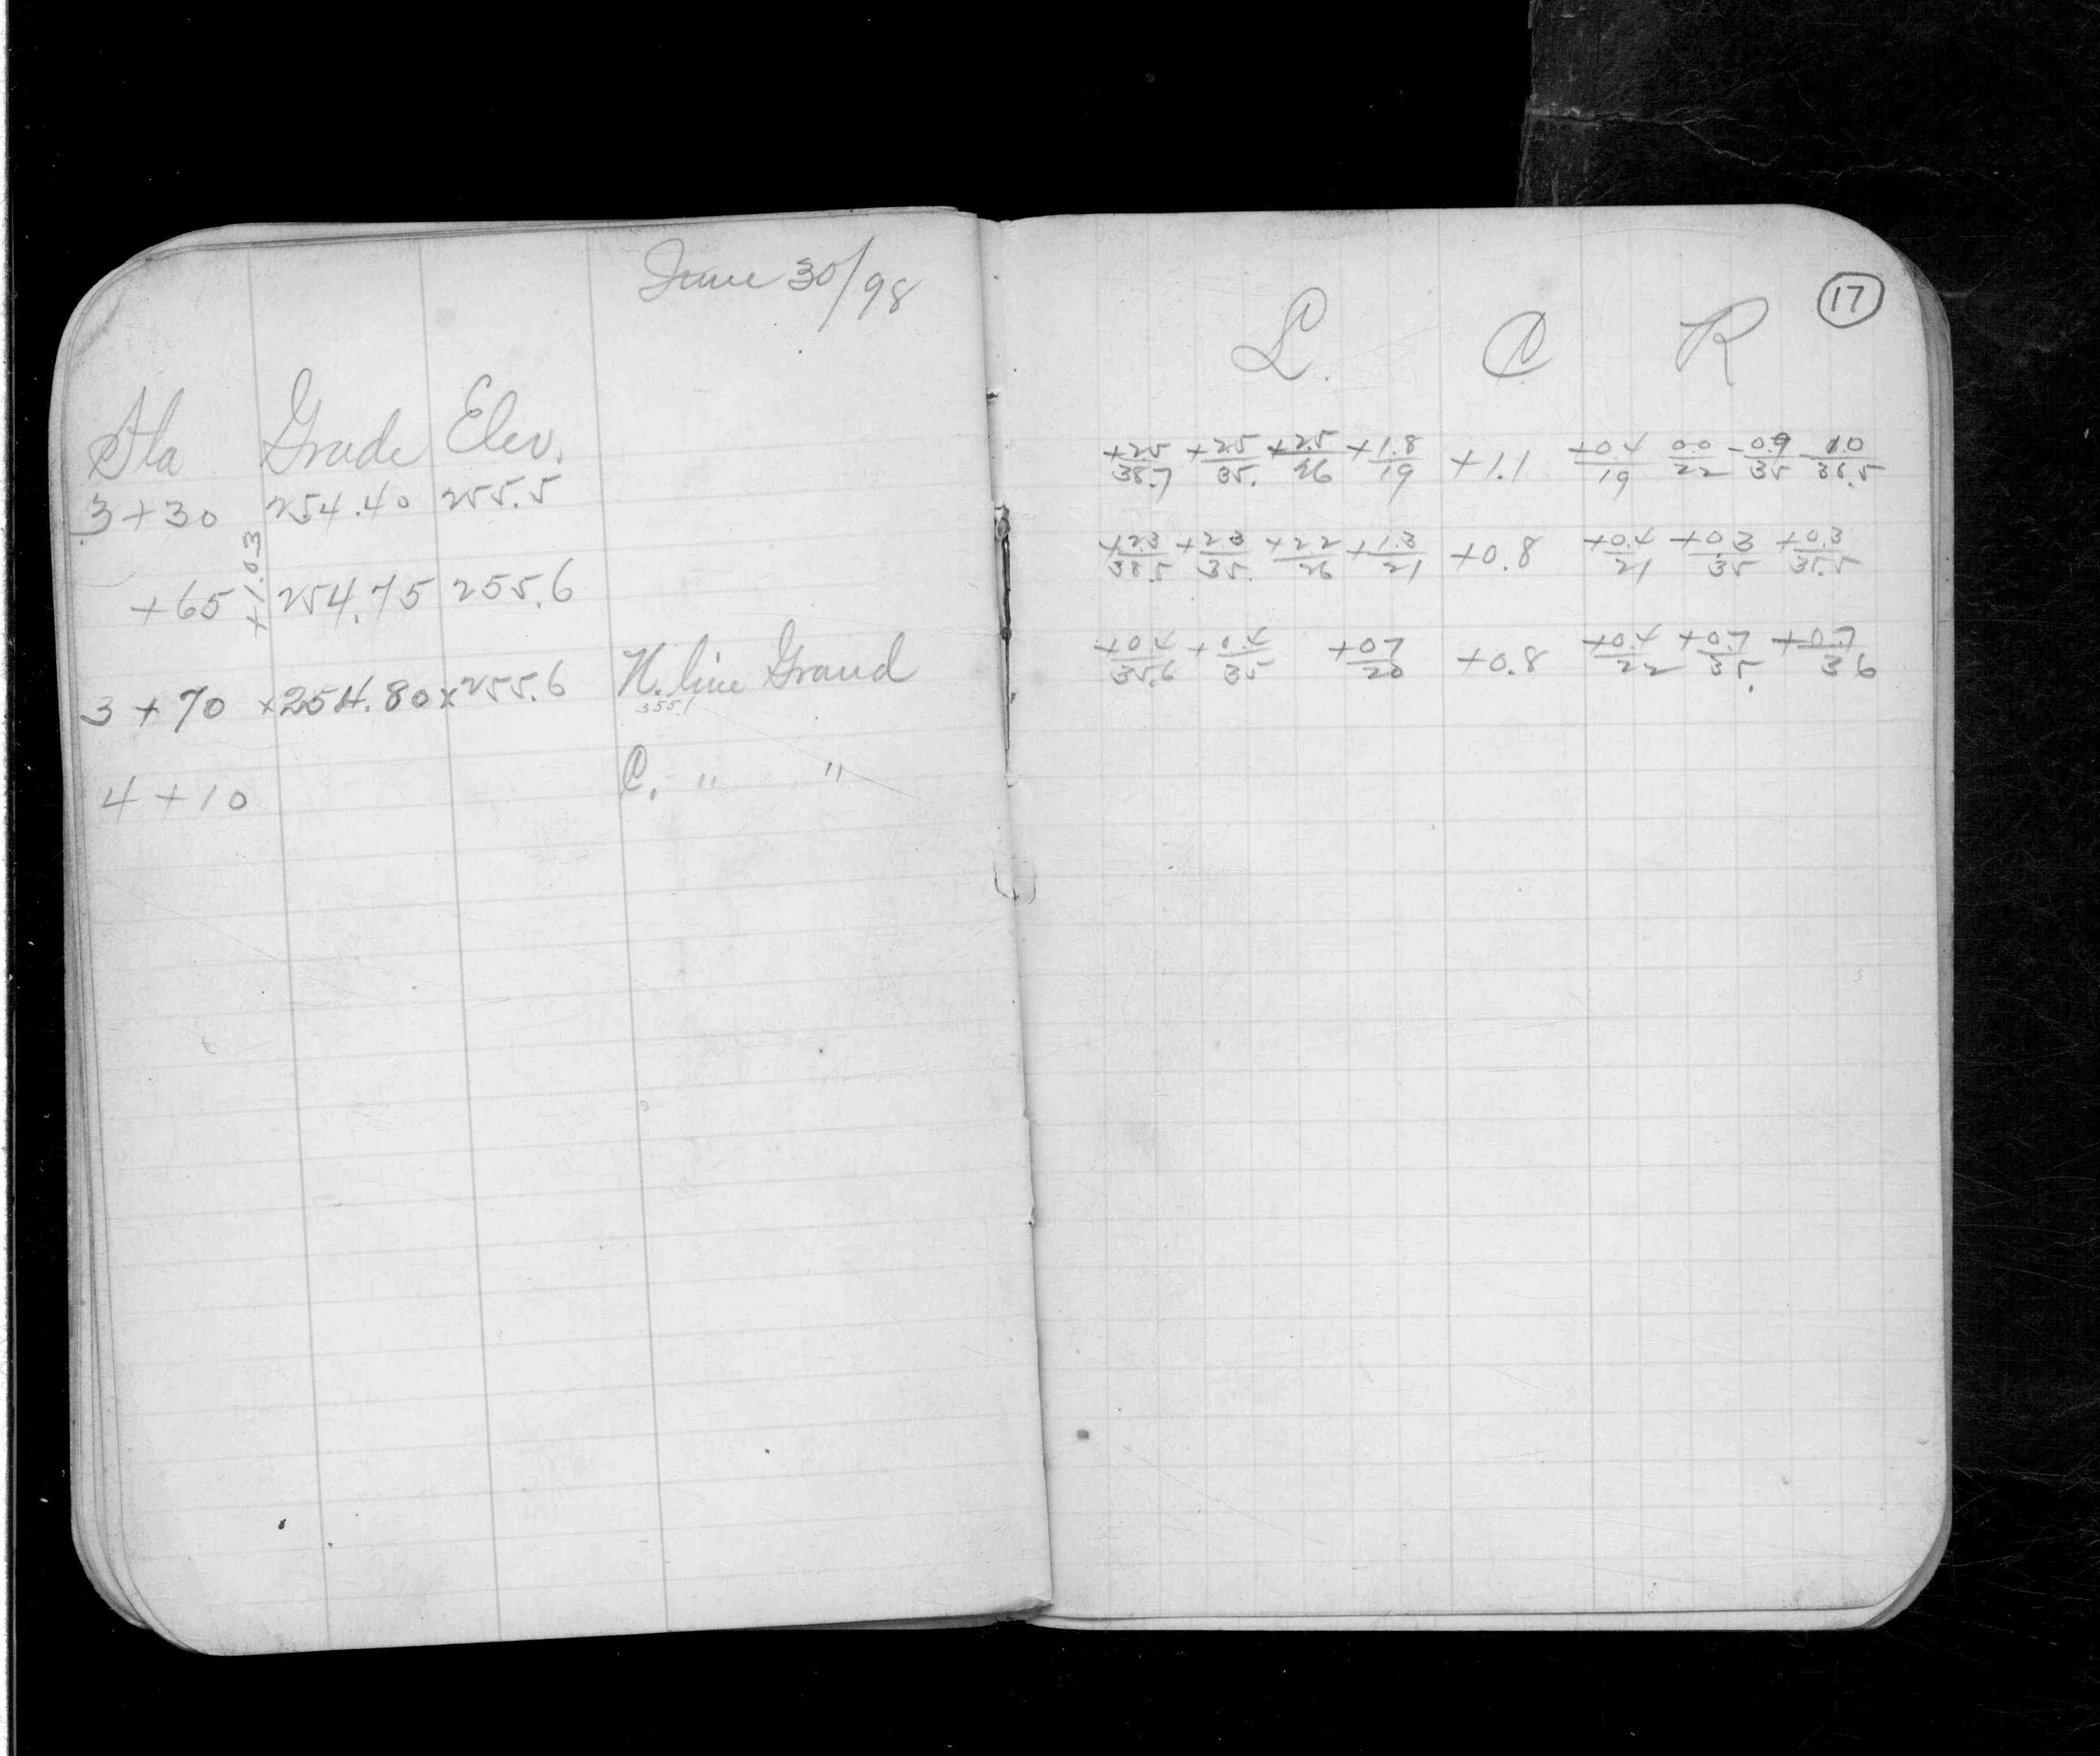 June 30/98
Sta Grade Elev.
3+30 254.40 255.5
+1.03
+65 254.75 255.6
3+70 x254.80x255.6 N. line Grand
3551
4+10 C. " "
17
L. C R
+2.5/38.7 +2.5/35. +2.5/26 +1.8/19 +1.1 +0.4/19 0.0/22 -0.9/35 -1.0/36.5
+2.3/38.5 +2.3/35. +2.2/26 +1.3/21 +0.8 +0.4/21 +0.3/35 +0.3/35.5
+0.4/35.6 +0.4/35 +07/20 +0.8 +0.4/22 +0.7/35. +0.7/36